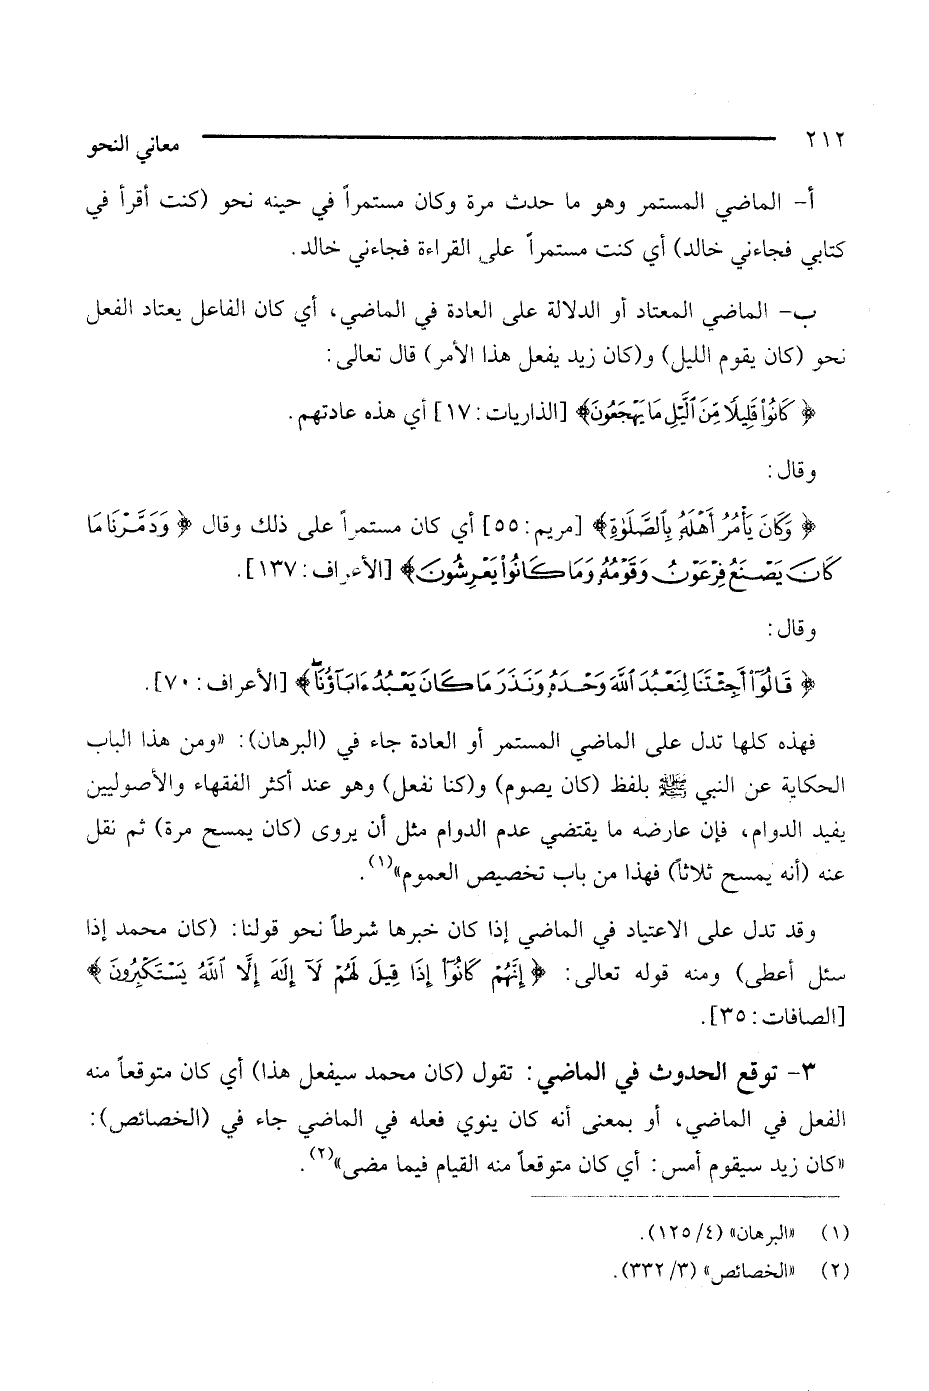 ٢١٢ معاني النحو
أ- الماضي المستمر وهو ما حدث مرة وكان مستمراً في حينه نحو (كنت أقرأ في
كتابي فجاءني خالد) أي كنت مستمراً على القراءة فجاءني خالد.
ب- الماضي المعتاد أو الدلالة على العادة في الماضي، أي كان الفاعل يعتاد الفعل
نحو (كان يقوم الليل) و(كان زيد يفعل هذا الأمر) قال تعالى:
﴿ كَانُوا۟ قَلِيلًا مِّنَ ٱلَّيْلِ مَا يَهْجَعُونَ﴾ [الذاريات: ١٧] أي هذه عادتهم.
وقال:
﴿ وَكَانَ يَأْمُرُ أَهْلَهُۥ بِٱلصَّلَوٰةِ﴾ [مريم: ٥٥] أي كان مستمراً على ذلك وقال ﴿ وَدَمَّرْنَا مَا
كَانَ يَصْنَعُ فِرْعَوْنُ وَقَوْمُهُۥ وَمَا كَانُوا۟ يَعْرِشُونَ﴾ [الأعراف: ١٣٧].
وقال:
﴿ قَالُوٓا۟ أَجِئْتَنَا لِنَعْبُدَ ٱللَّهَ وَحْدَهُۥ وَنَذَرَ مَا كَانَ يَعْبُدُ ءَابَآؤُنَاۖ﴾ [الأعراف: ٧٠].
فهذه كلها تدل على الماضي المستمر أو العادة جاء في (البرهان): «ومن هذا الباب
الحكاية عن النبي ﷺ بلفظ (كان يصوم) و(كنا نفعل) وهو عند أكثر الفقهاء والأصوليين
يفيد الدوام، فإن عارضه ما يقتضي عدم الدوام مثل أن يروى (كان يمسح مرة) ثم نقل
عنه (أنه يمسح ثلاثاً) فهذا من باب تخصيص العموم»(١).
وقد تدل على الاعتياد في الماضي إذا كان خبرها شرطاً نحو قولنا: (كان محمد إذا
سئل أعطى) ومنه قوله تعالى: ﴿ إِنَّهُمْ كَانُوٓا۟ إِذَا قِيلَ لَهُمْ لَآ إِلَٰهَ إِلَّا ٱللَّهُ يَسْتَكْبِرُونَ﴾
[الصافات: ٣٥].
٣- توقع الحدوث في الماضي: تقول (كان محمد سيفعل هذا) أي كان متوقعاً منه
الفعل في الماضي، أو بمعنى أنه كان ينوي فعله في الماضي جاء في (الخصائص):
«كان زيد سيقوم أمس: أي كان متوقعاً منه القيام فيما مضى»(٢).
(١) «البرهان» (٤/ ١٢٥).
(٢) «الخصائص» (٣/ ٣٣٢).